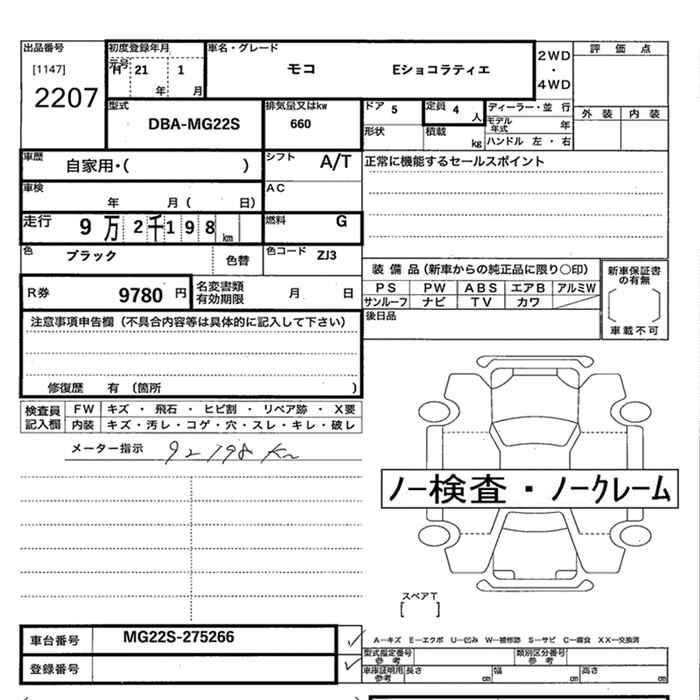 出品番号
[1147]
2207
初度登録年月
元号
H 21 1
年 月
車名・グレード
モコ Eショコラティエ
2WD
・
4WD
評 価 点
外 装 内 装
型式
DBA-MG22S
排気量又はkw
660
ドア 5
定員 4 人
形状
積載 kg
ディーラー・並 行
モデル年式 年
ハンドル 左・右
車歴
自家用・( )
シフト A/T
正常に機能するセールスポイント
車検
年 月( 日)
AC
走行 9万 2千198 km
燃料 G
色 ブラック
色替
色コード ZJ3
R券 9780 円
名変書類
有効期限
月 日
装 備 品(新車からの純正品に限り○印)
PS PW ABS エアB アルミW
サンルーフ ナビ TV カワ
後日品
新車保証書
の有無
車載不可
注意事項申告欄(不具合内容等は具体的に記入して下さい)
修復歴 有 (箇所 )
検査員
記入欄
FW キズ ・ 飛石 ・ ヒビ割 ・ リペア跡 ・ X要
内装 キズ・汚レ・コゲ・穴・スレ・キレ・破レ
メーター指示 92198 Km
ノー検査・ノークレーム
スペアT
[ ]
車台番号 MG22S-275266
登録番号
A―キズ E―エクボ U―凹み W―補修跡 S―サビ C―腐食 XX―交換済
型式指定番号
参考
類別区分番号
参考
車庫証明用
参考
長さ cm 幅 cm 高さ cm